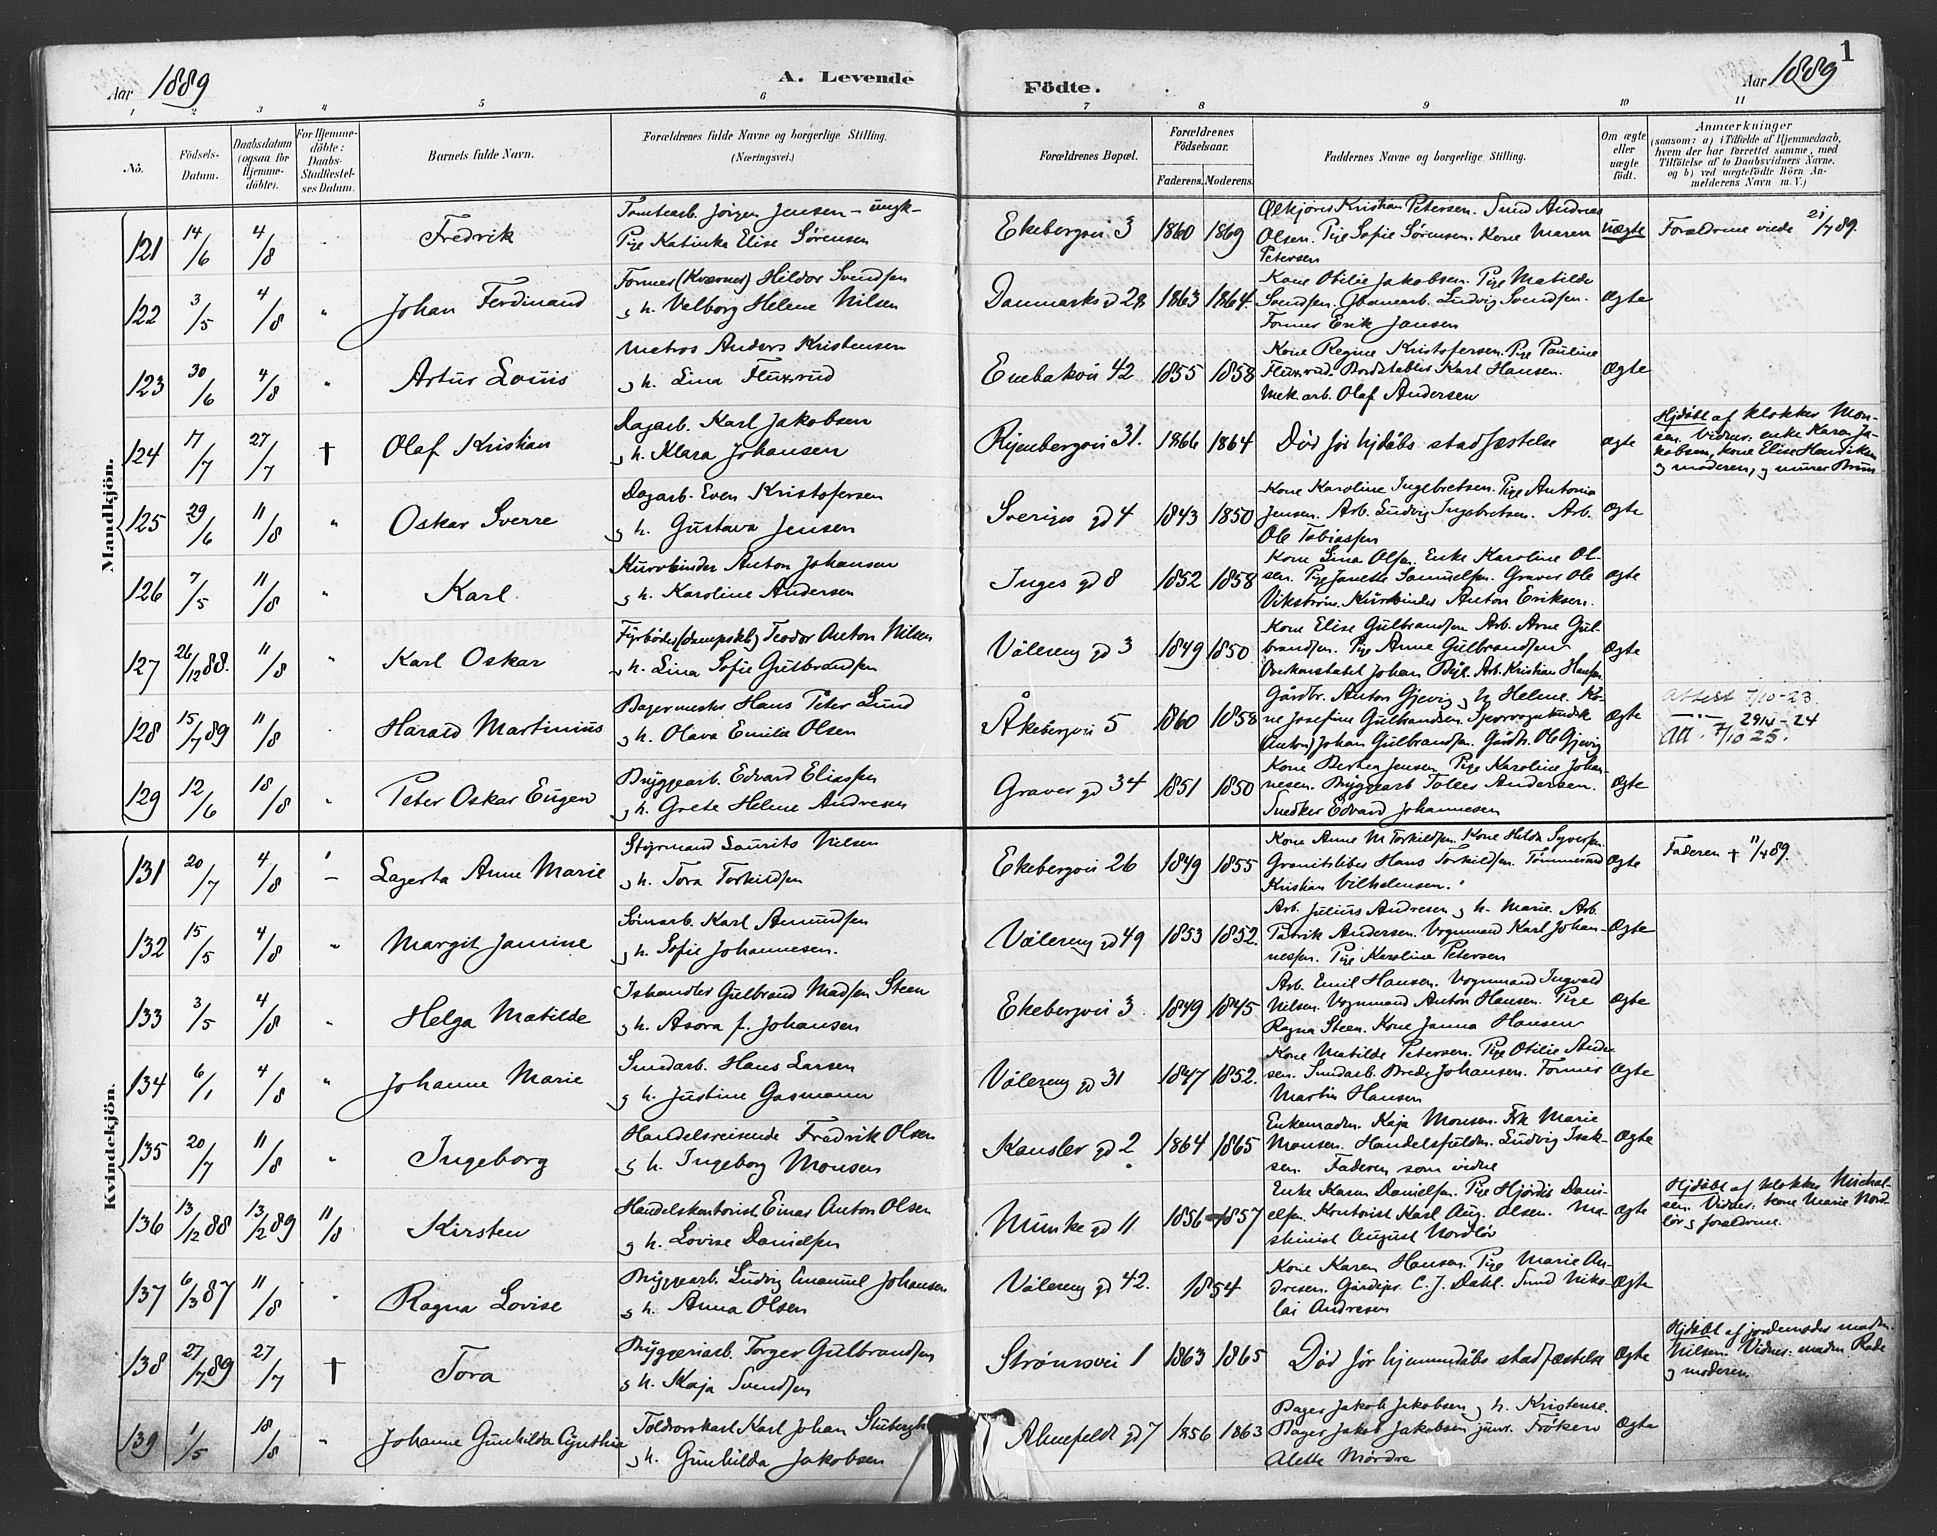 1
Aar 1889 A. Levende Födte. Aar 1889
1 2 3 4 5 6 7 8 9 10 11
No. Födsels-Datum. Daabsdatum (ogsaa for Hjemme-döbte). For Hjemme-döbte: Daabs-Stadfæstel-ses Datum. Barnets fulde Navn. Forældrenes fulde Navne og borgerlige Stilling. (Næringsvei.) Forældrenes Bopæl. Forældrenes Födselsaar. Faderens. Moderens. Faddernes Navne og borgerlige Stilling. Om ægte eller uægte födt. Anmærkninger (saasom: a) i Tilfælde af Hjemmedaab, hvem der har forrettet samme, med Tilföielse af to Daabsvidners Navne, og b) ved uægtefödte Börn An-melderens Navn m. V.)
Mandkjön.
121 14/6 4/8 Fredrik Tomtearb. Jörgen Jensen - ungk- Pige Katinka Elise Sørensen Ekebergvei 3 1860 1869 Kristian Petersen. Smed Andreas Olsen. Pige Sofie Sørensen. Kone Maren Petersen uægte Forældrene viede 21/7 89.
122 3/5 4/8 " Johan Ferdinand Former (Kværner) Hildor Svendsen og h. Valborg Helene Nilsen Danmarks gd 28 1863 1864. Kone Otilie Jakobsen. Pige Matilde Svendsen. Ludvig Svendsen. Former Erik Jansen ægte
123 30/6 4/8 " Artur Louis Matros Anders Kristensen og h. Lina Fluxrud Enebakvei 42 1855 1858 Kone Regine Kristofersen. Pige Pauline Fluxrud. Karl Hansen. Mek. arb. Olaf Andersen Ægte
124 17/7 27/7 † Olaf Kristian Dagarb. Karl Jakobsen og h. Klara Johansen Ryenbergvei 31. 1866 1864 Död för hjdåbs stadfæstelse ægte Hjdöbt af klokker Mon-sen. Vidner: enke Karen Ja-kobsen, kone Elise Henriksen og moderen, og murer
125 29/6 11/8 " Oskar Sverre Dagarb. Even Kristofersen og h. Gustava Jensen Sveriges gd 4 1843 1850 Kone Karoline Ingebretsen. Pige Antonia Jensen. Arb. Ludvig Ingebretsen. Arb. Ole Tobiassen Ægte
126 7/5 11/8 " Karl Kurvbinder Anton Johansen og h. Karoline Andersen Inges gd 8 1852 1858 Kone Lina Olsen. Enke Karoline Ol-sen. Pige Janette Samuelsen. Graver Ole Vikström. Kurvbinder Anton Eriksen. Ægte
127 26/12 88. 11/8 " Karl Oskar Fyrböder (dampskib) Teodor Anton Nilsen og h. Lina Sofie Gulbrandsen Vålereng gd 3 1849 1850 Kone Elise Gulbrandsen Arb. Arne Gul-brandsen. Pige Anne Gulbrandsen Johan Arb. Kristian Hansen Ægte
128 15/7 89 11/8 Harald Martinius Bagermester Hans Peter Lund og h. Olava Emilie Olsen Åkebergvei 5 1860 1858 Gårdbr. Anton Gjevig og h. Helene. Ko-ne Josefine Gulbrandsen. (Anton) Johan Gulbrandsen. Gårdbr. Ole Gjevig Ægte Attest 7/10-23. —"— 29/4-24 Att. 7/10 25.
129 12/6 18/8 " Peter Oskar Eugen Bryggearb. Edvard Eliassen og h. Grete Helene Andresen Graver gd 34 1851 1850 Kone Bertea Jensen. Pige Karoline Johan-nesen. Bryggearb Andersen. Snedker Edvard Johannesen Ægte
Kvindekjön.
131 20/7 4/8 Lagerta Anne Marie Styrmand Laurits Nilsen og h. Tora Torkildsen Ekebergvei 26 1849 1855 Kone Anne M. Torkildsen. Kone Hilda Syversen. Granitsliber Hans Torkildsen. Tömmermand Kristian Vilhelmsen. Ægte Faderen † 11/4 89.
132 15/5 4/8 " Margit Jamine Sömarb. Karl Amundsen og h. Sofie Johannesen. Vålereng gd 49 1853 1852. Arb. Julius Andresen og h. Marie. Arb. Patrik Andersen. Vognmand Karl Johan-nessen. Pige Karoline Petersen Ægte
133 3/5 4/8 " Helga Matilde Ishandler Gulbrand Madsen Steen og h. Asora f. Johansen Ekebergvei 3. 1849 1845 Arb. Emil Hansen. Vognmand Ingvald Nilsen. Vognmand Anton Hansen. Pige Ragna Steen. Kone Janna Hansen Ægte
134 6/1 4/8 " Johanne Marie Smedarb. Hans Larsen og h. Justine Gasmann Vålereng gd 31 1847 1852. Kone Matilde Petersen. Pige Otilie Ander-sen. Smedarb. Brede Johansen. Former Martin Hansen Ægte
135 20/7 11/8 " Ingeborg Handelsreisende Fredrik Olsen og h. Ingeborg Monsen Kansler gd 2 1864 1865 Enkemadam Kaja Monsen. Frk Marie Monsen. Handelsfuldm. Ludvig Isak-sen. Faderen som vidne Ægte
136 13/12 88 13/2 89 11/8 Kirsten Handelskontorist Einar Anton Olsen og h. Lovise Danielsen Munke gd 11 1856 1857 Enke Karen Danielsen. Pige Hjördis Dani-elsen. Kontorist Karl Aug. Olsen. Ma-skinist August Nordlör Ægte Hjdöbt af klokker Michal-sen. Vidner: kone Marie Nord-lör og forældrene.
137 6/3 87 11/8 " Ragna Lovise Bryggearb. Ludvig Emanuel Johansen og h. Anna Olsen Vålereng gd 42. 1854 Kone Karen Hansen. Pige Marie An-dresen. C. J. Dahl. Smed Niko-lai Andresen Ægte
138 27/7 89 27/7 † Tora Bryggeriarb. Torger Gulbrandsen og h. Kaja Svendsen Strömsvei 1 1863 1865 Död för hjemmdåbs stadfæstelse Ægte Hjdöbt af jordemoder madm. Nilsen. Vidner: madm. Rade og moderen
139 1/5 18/8 " Johanne Gunhilda Cynthia Toldvorkarl Karl Johan og h. Gunhilda Jakobsen Ahnefeldt gd 7 1856 1863 Bager Jakob Jakobsen og h. Kristense. Bager Jakob Jakobsen junr. Fröken Alette Mördre Ægte